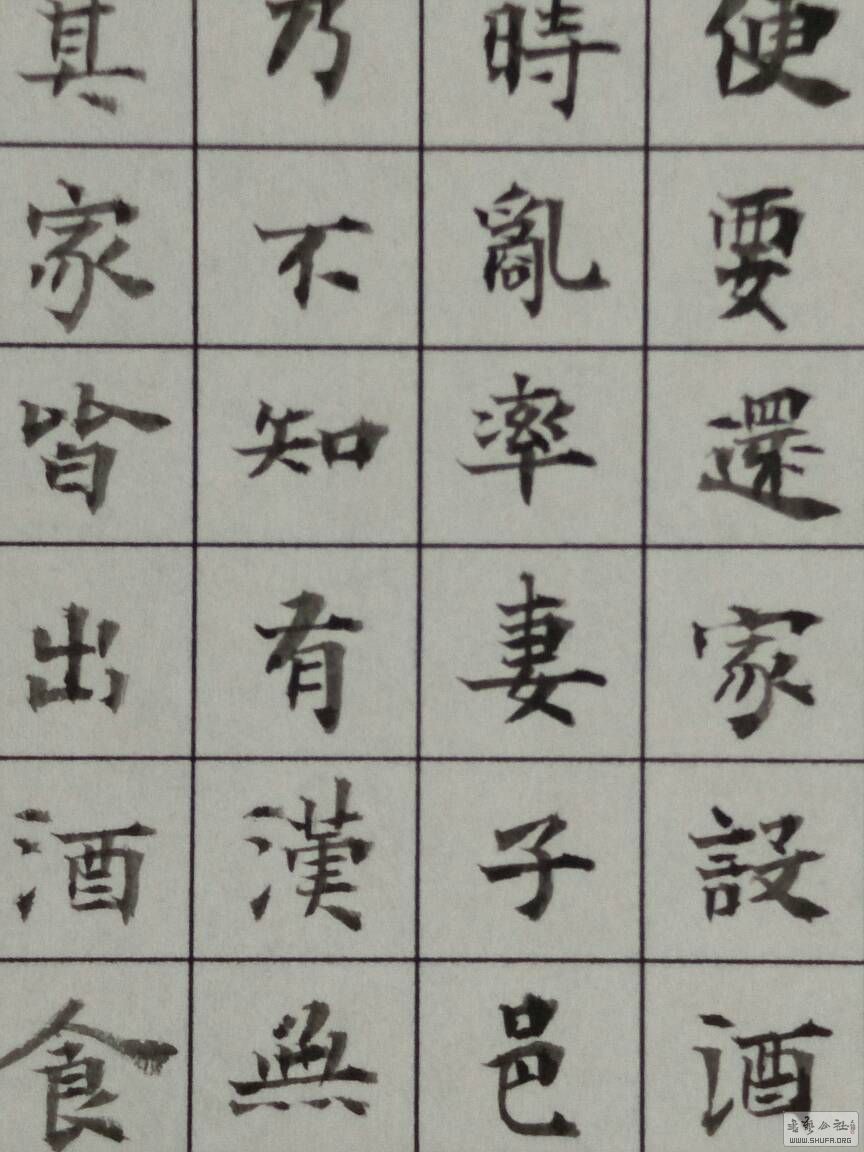 便要還家設酒
時亂率妻子邑
乃不知有漢無
其家皆出酒食
WWW.SHUFA.ORG